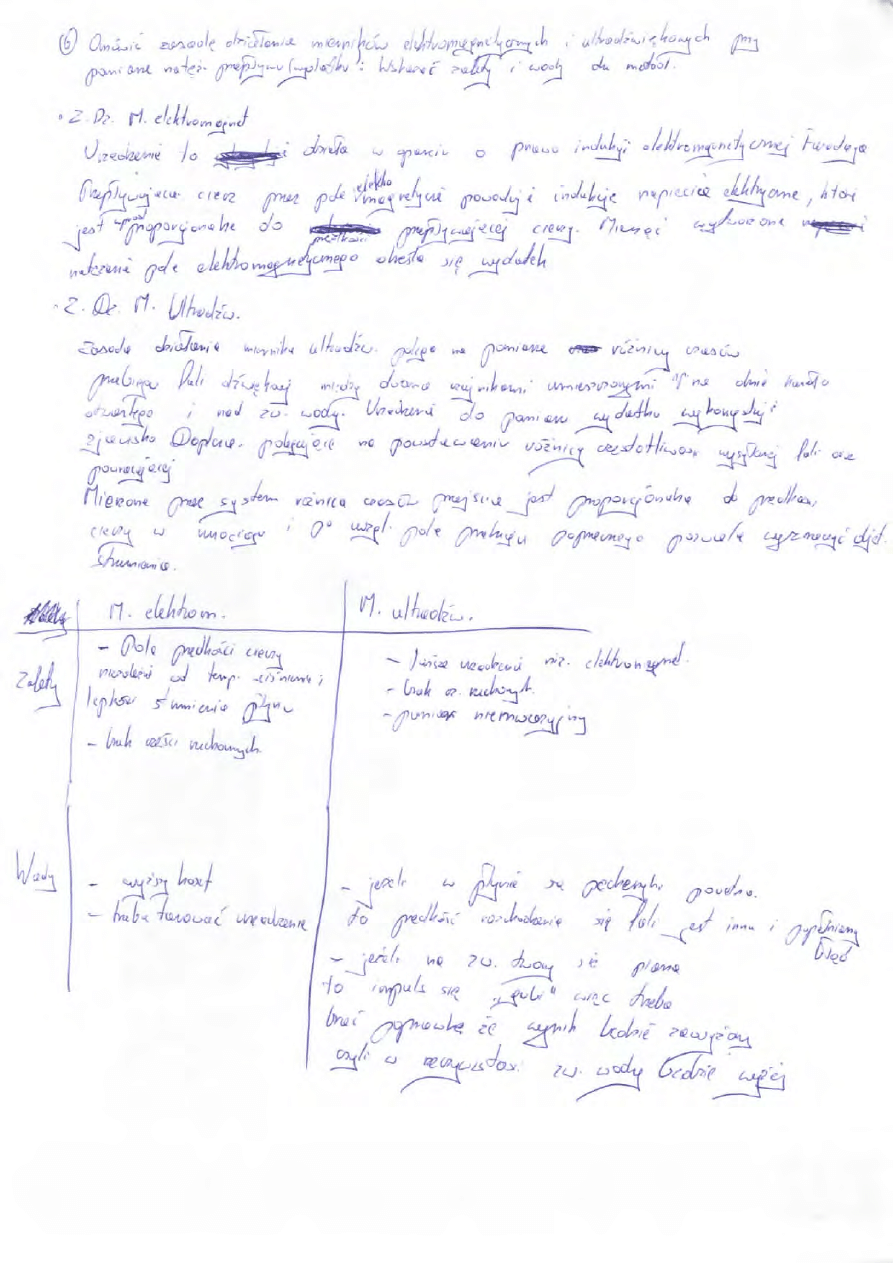 ⑥ Omówić zasadę działania mierników elektromagnetycznych i ultradźwiękowych przy
pomiarze natęż. przepływu (wydatku). Wskazać zalety i wady du metod.
• Z. Dz. M. elektromagnet
Urządzenie to działa w oparciu o prawo indukcji elektromagnetycznej Faradaya
Przepływająca ciecz przez pole elektromagnetyczne powoduje indukuje napięcie elektryczne, które
jest wprost proporcjonalne do prędkości przepływającej cieczy. Mierząc wytworzone
natężenie pole elektromagnetycznego określa się wydatek
• Z. Dz. M. Ultradźw.
Zasada działania miernika ultradźw. polega na pomiarze różnicy czasów
przebiegu fali dźwiękowej między dwoma czujnikami umieszczonymi na dnie kanału
otwartego i nad zw. wody. Urządzenia do pomiaru wydatku wykorzystuje
zjawisko Dopplera. polegające na powstawaniu różnicy częstotliwości wysyłanej fali oraz
powracającej
Mierzona przez system różnica czasów przejścia jest proporcjonalna do prędkości
cieczy w rurociągu i po uwzgl. pola przekroju poprzecznego pozwala wyznaczyć objęt.
strumienia.
M. elektrom. M. ultradźw.
Zalety
- Pole prędkości cieczy
niezależni od temp. ciśnienia i
lepkości strumienia płynu
- brak części ruchomych
- Tańsze urządzenie niż elektromagnet.
- brak cz. ruchomych.
- pomiar nieinwazyjny
Wady
- wyższy koszt
- trzeba tarować urządzenie
- jeżeli w płynie są pęcherzyki powietrza.
to prędkość rozchodzenia się fali jest inna i popełniamy
błąd
- jeżeli na zw. tworzy się piana
to impuls się "gubi" więc trzeba
brać poprawkę że wynik będzie zawyżony
czyli w rzeczywistości zw. wody będzie wyżej